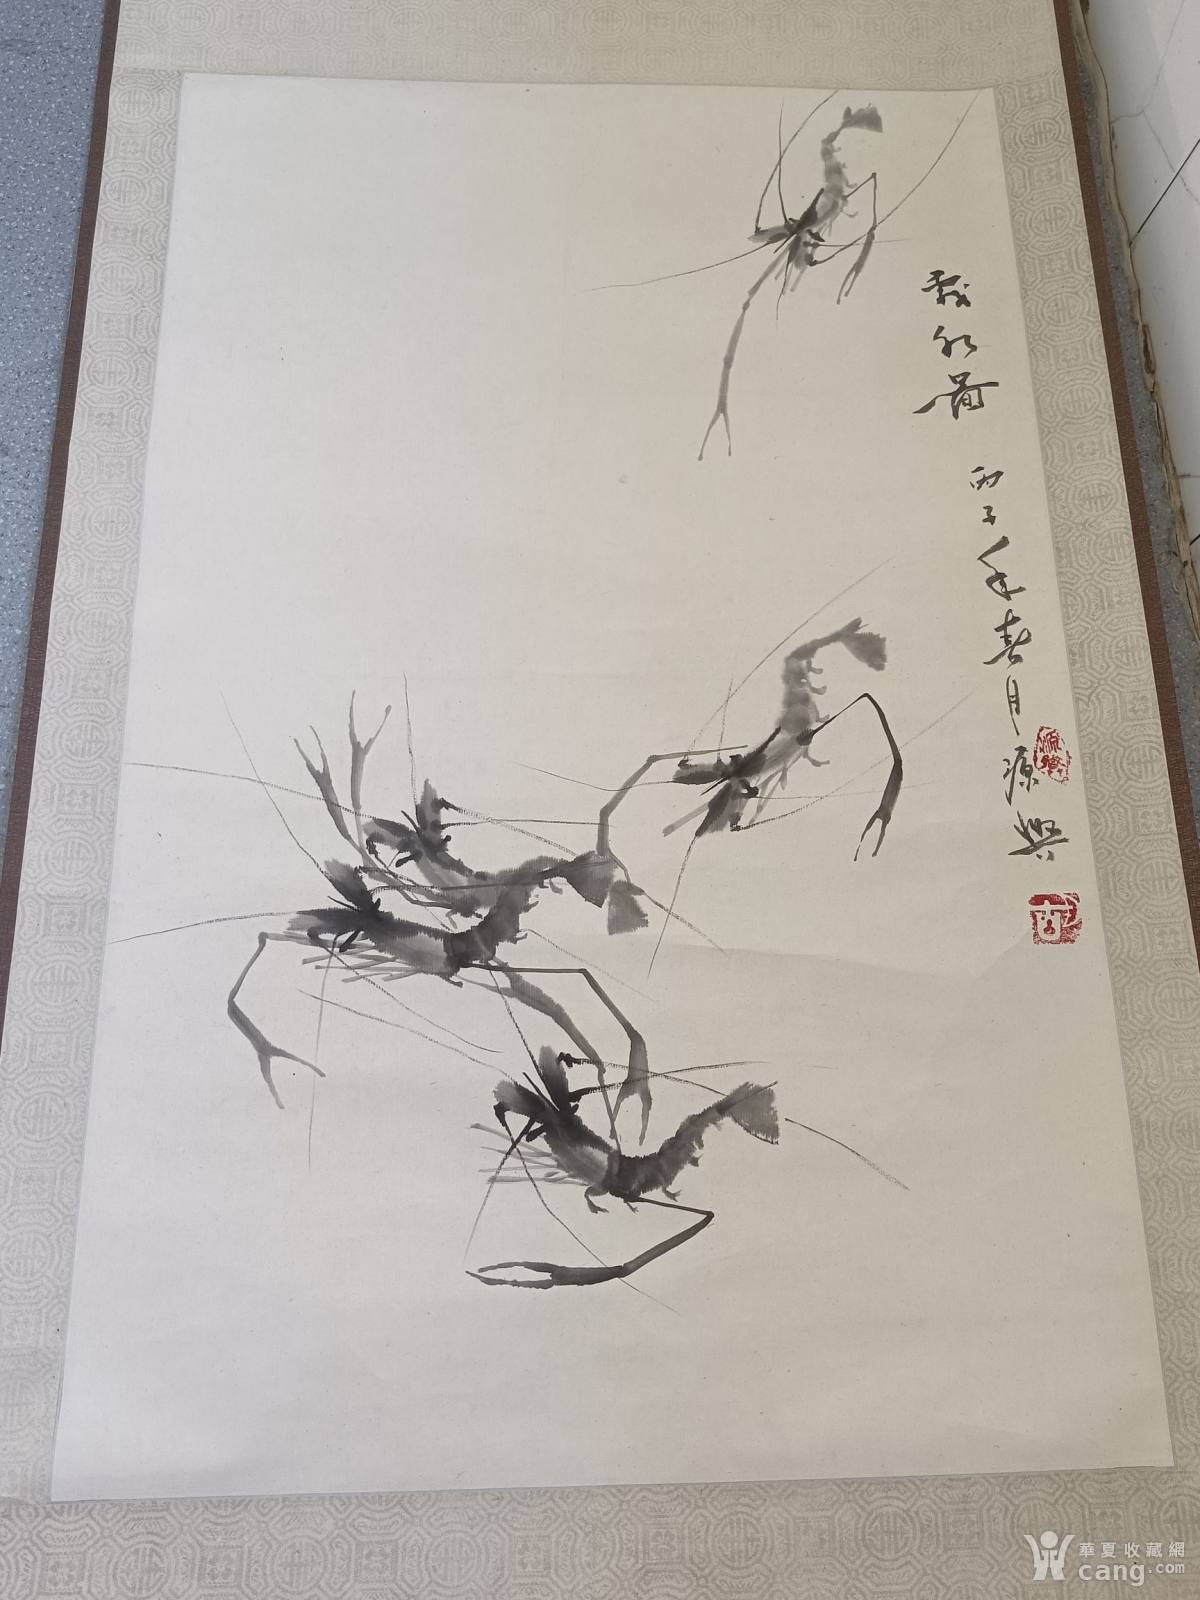 戲水圖
丙子年春月源興
源興
華夏收藏網
cang.com